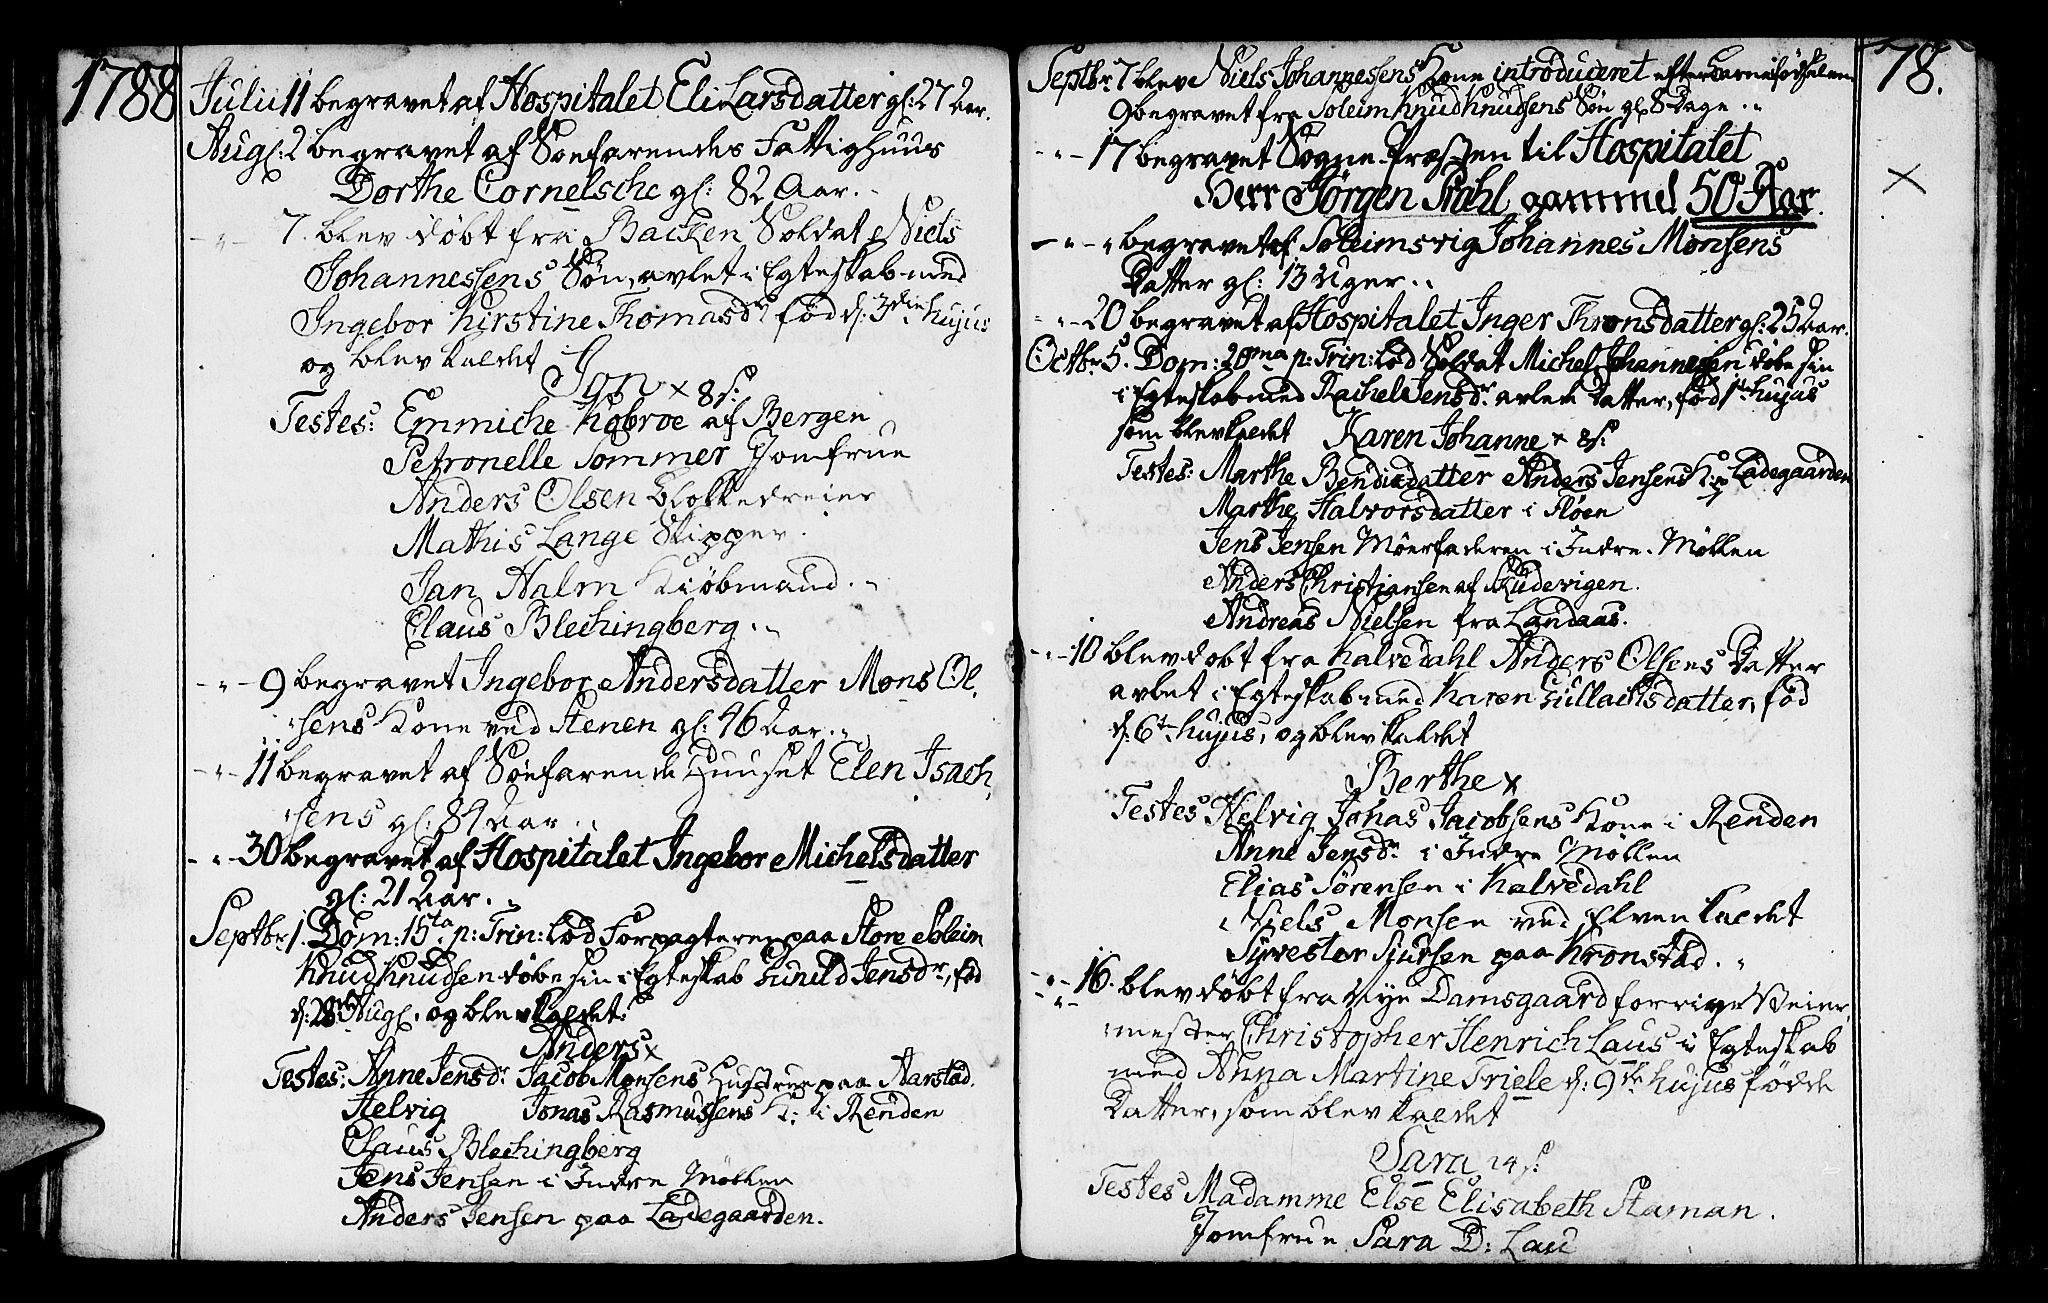 1788
Julii 11 begravet af Hospitalet Eli Larsdatter gl: 27 Aar.
Augl: 2 begravet af Söefarendes Fattighuus
Dorthe Cornelsche gl: 82 Aar.
-"- 7. blev döbt fra Backen Soldat Niels
Johannessens Sön, avlet i Egteskab med
Ingebor Kirstine Thomasdr föd d: 3die hujus
og blev kaldet
Jon x 8 s:
Testes: Emmiche Kobroe af Bergen
Petronelle Sommer Jomfrue
Anders Olsen Blokkedreier
Mathis Lange Skipper.
Jan Halm Kiöbmand.
Claus Blechingberg.
-"- 9 begravet Ingebor Andersdatter Mons Ol-
sens Kone ved Stenen gl: 46 Aar.
-"- 11 begravet af Söefarende Huuset Elen Isach-
sens gl: 84 Aar
-"- 30 begravet af Hospitalet Ingebor Michelsdatter
gl: 21 Aar.
Septbr 1. Dom: 15ta p: Trin: lod Forpagteren paa Store
Knud Knudsen döbe sin i Egteskab Gunild Jensdr, föd
d: 28 Augl, og blev kaldet
Anders x
Testes: Anne Jensdr Jacob Monsens Hustrue paa Aarstad.
Helvig Jonas Rasmussens K: i Renden
Claus Blechingberg
Jens Jensen i Indre Möllen
Anders Jensen paa Ladegaarden.
78.
Septbr 7 blev Niels Johannessens Kone introduceret efter Barnefödselen
9 begravet fra Soleim Knud Knudsens Sön gl: 8 Dage
-"- 17 begravet Sogne-Præsten til Hospitalet
Herr Jörgen Stahl gammel 50 Aar.
x
-"- " begravet af Soleimsvig Johannes Monsens
Datter gl: 13 Uger
-"- 20 begravet af Hospitalet Inger Thronsdatter gl: 25 Aar.
Octbr 5. Dom: 20ma p: Trin: lod Soldat Michel Johannesen döbe sin
i Egteskab med Rachel Jensdr avlede Datter, föd 1te hujus
som blev kaldet Karen Johanne x 8 s:
Testes: Marthe Bendixdatter Anders Jensens K: p Ladegaarden
Marthe Halvorsdatter i Flöen
Jens Jensen Möerfaderen i Indre Möllen
Anders Christiansen af Skudevigen.
Andreas Nielsen fra Landaas.
-"- 10 blev döbt fra Kalvedahl Anders Olsens Datter
avlet i Egteskab med Karen Gullachsdatter, föd
d: 6te hujus, og blev kaldet
Berthe x
Testes Helvig Jonas Jacobsens Kone i Renden
Anne Jensdr i Indre Möllen
Elias Sörensen i Kalvedahl
Niels Monsen ved Elven kaldet
Syvester Sjursen paa Kronstad.
-"- 16. blev döbt fra Nye Damsgaard forrige Veier-
mester Christopher Henrich Laus i Egteskab
med Anna Martine Friele d: 9de hujus födde
Datter, som blev kaldet
Sara 24 s:
Testes Madamme Else Elisabeth Staman.
Jomfrue Sara D: Lau